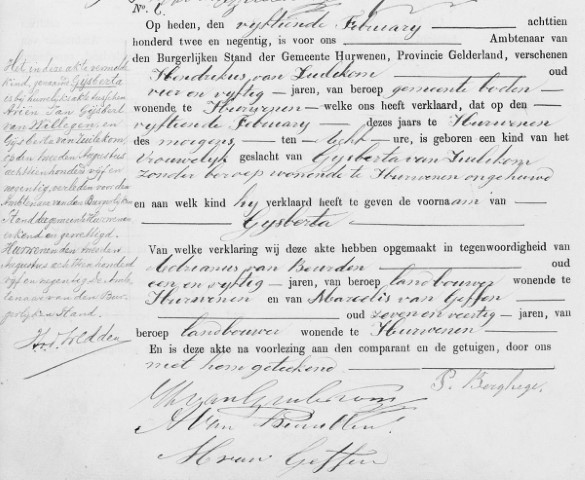 No. 6.
Op heden, den vijftiende February achttien
honderd twee en negentig, is voor ons Ambtenaar van
den Burgerlijken Stand der Gemeente Hurwenen, Provincie Gelderland, verschenen
Hendrikus van Zuilekom oud
vier en vijftig jaren, van beroep gemeente bode
wonende te Hurwenen welke ons heeft verklaard, dat op den
vijftiende February dezes jaars te Hurwenen
des morgens ten acht ure, is geboren een kind van het
vrouwelijk geslacht van Gijsberta van Zuilekom
zonder beroep wonende te Hurwenen ongehuwd
en aan welk kind hij verklaard heeft te geven de voornaam van
Gijsberta
Van welke verklaring wij deze akte hebben opgemaakt in tegenwoordigheid van
Adrianus van oud
een en vijftig jaren, van beroep landbouwer wonende te
Hurwenen en van Marcelis van Geffen
oud zeven en veertig jaren, van
beroep landbouwer wonende te Hurwenen
En is deze akte na voorlezing aan den comparant en de getuigen, door ons
met hen geteekend
P.
van Zuilekom
A van
M van Geffen
Het in deze akte vermelde
kind, genaamd Gijsberta
is bij huwelijksakte tusschen
Arien Jan Gijsbert
van Wellegen en
Gijsberta van Zuilekom
op den tweeden Augustus
achttienhonderd vijf en
negentig verleden voor den
Ambtenaar van den Burgerlijken
Stand der gemeente Hurwenen
erkend en gewettigd.
Hurwenen den tweeden
Augustus achttienhonderd
vijf en negentig De Ambtenaar
van den Burgerlijken
Stand.